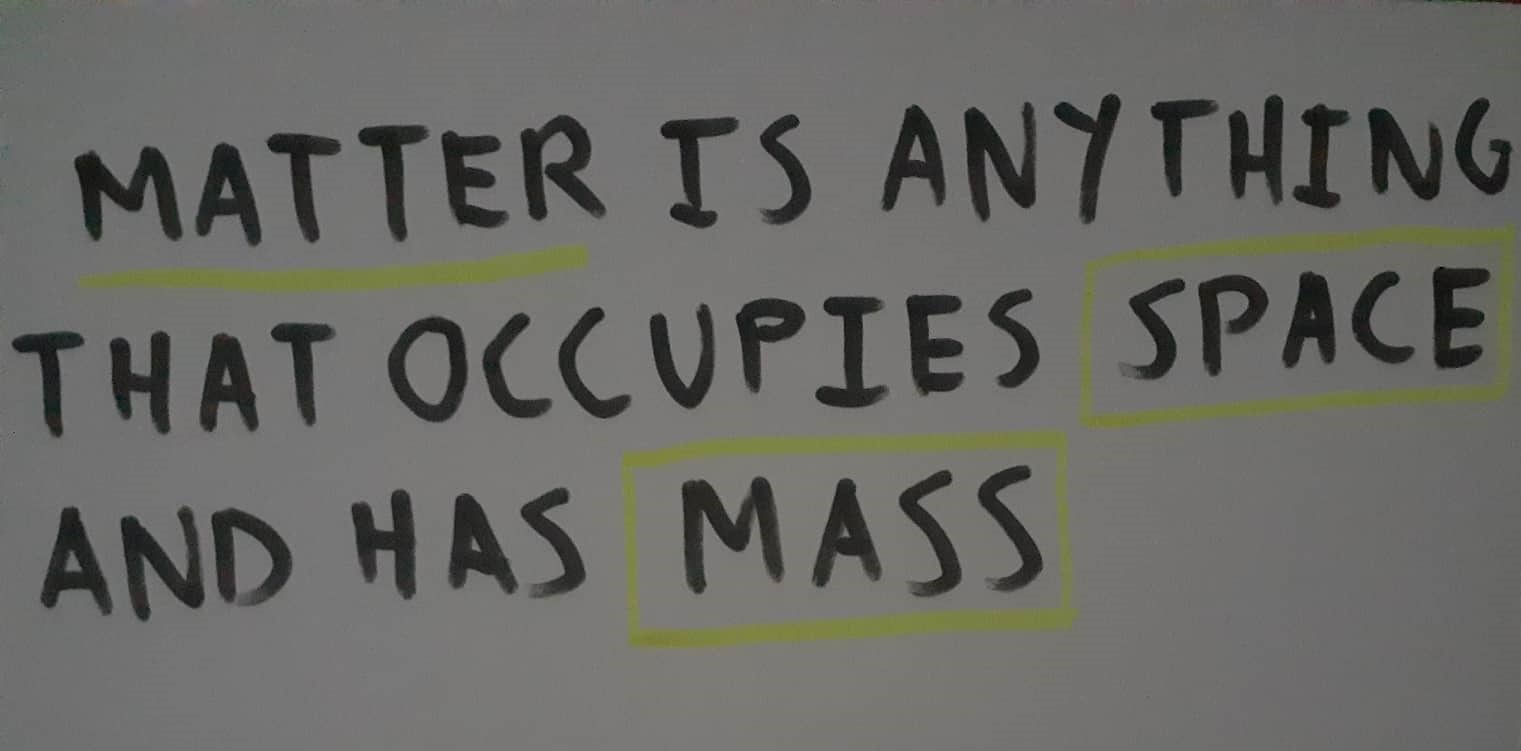 MATTER IS ANYTHING
THAT OCCUPIES SPACE
AND HAS MASS